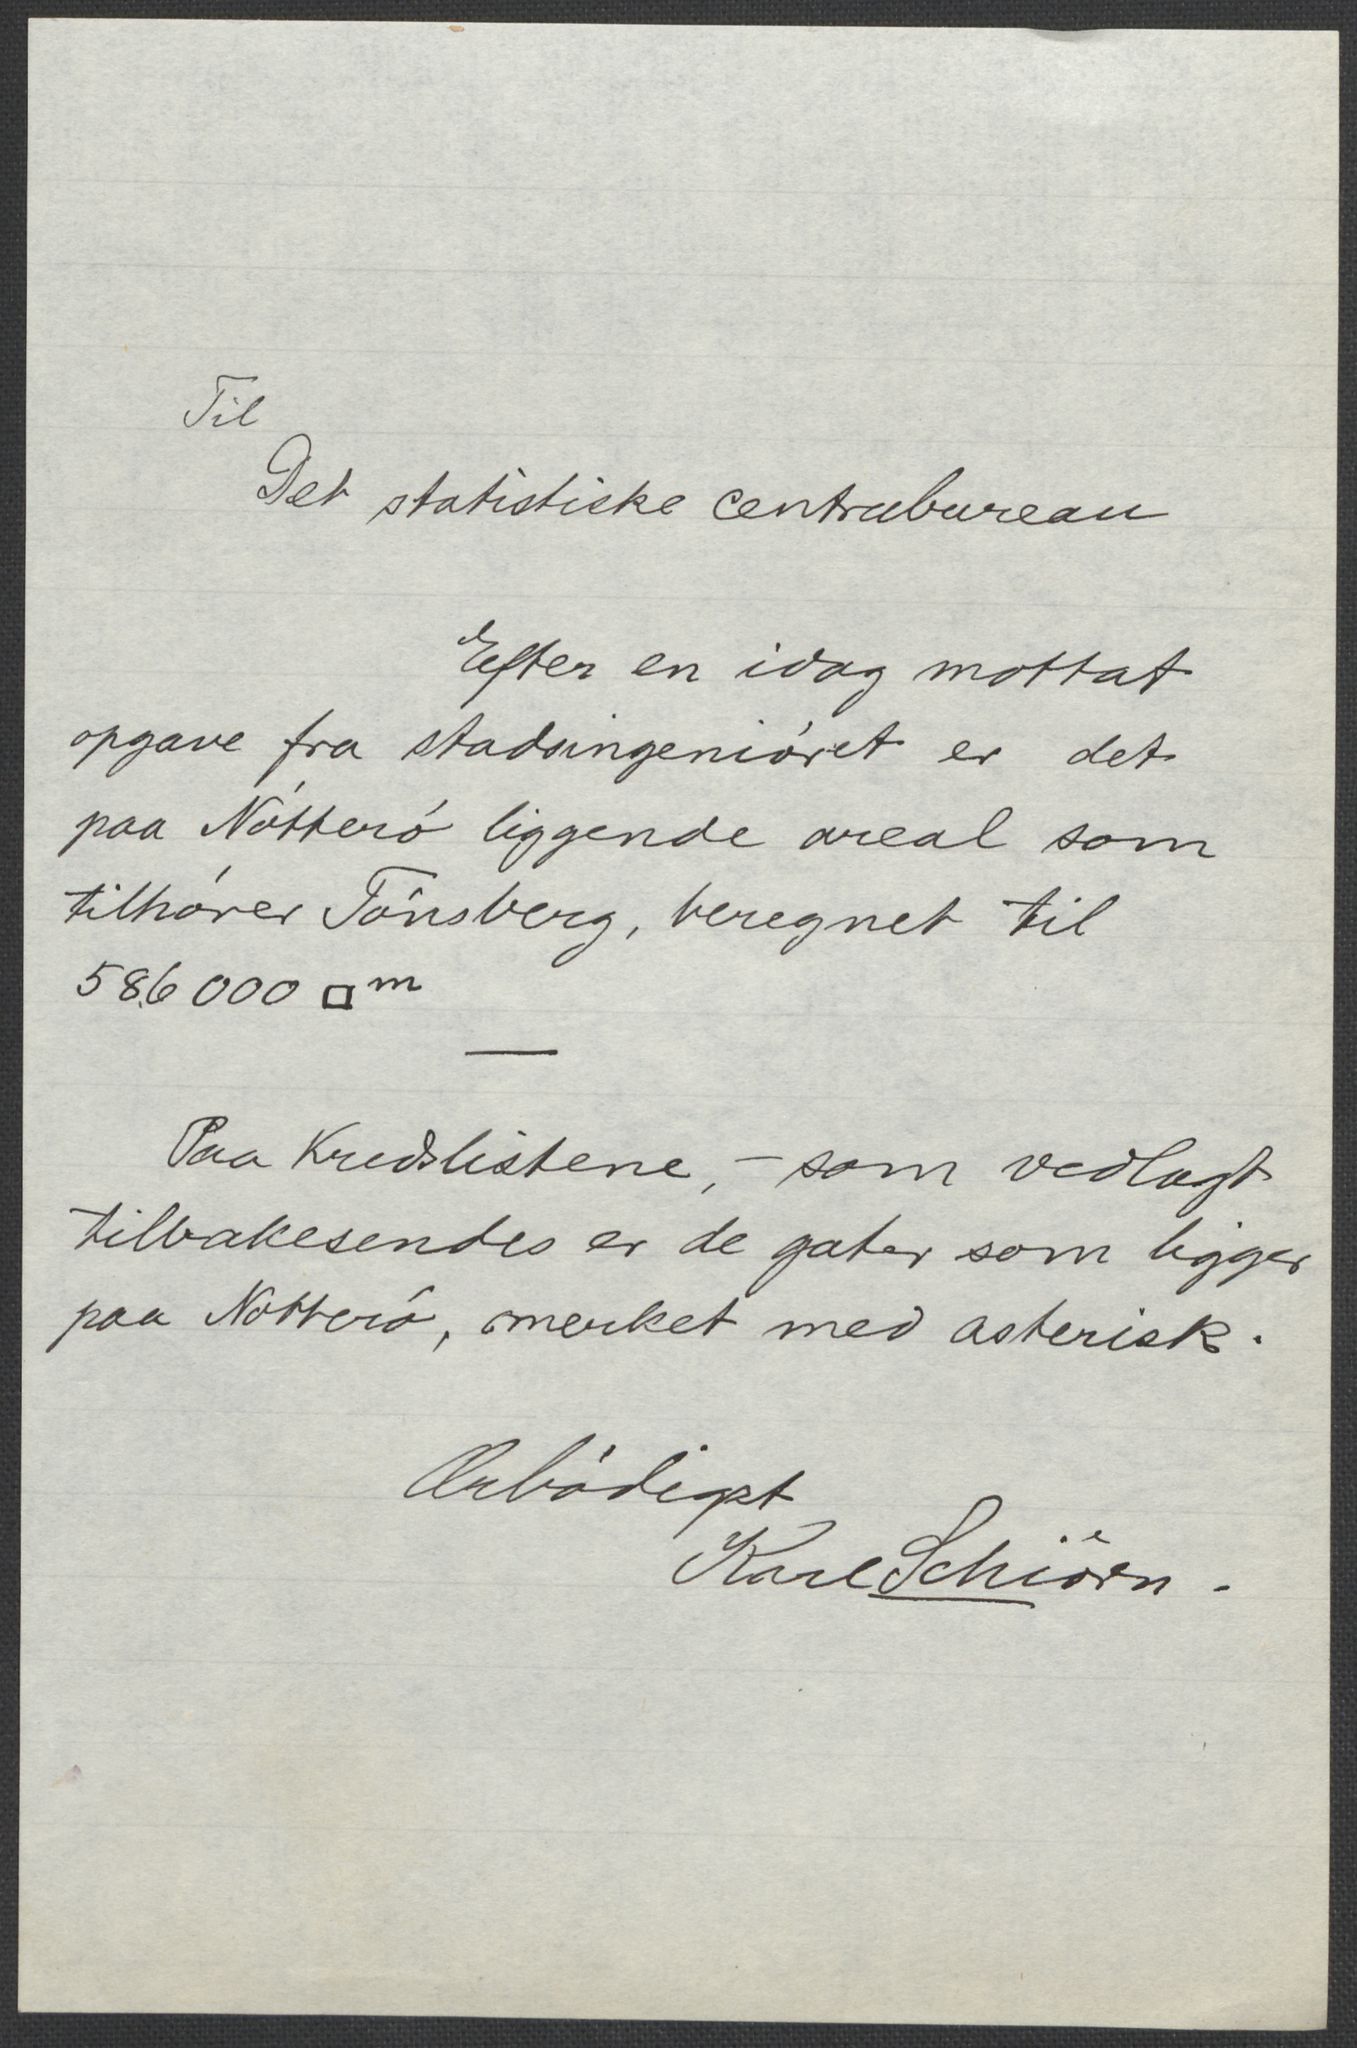 Til
Det statistiske centrabureau
Efter en idag mottat
opgave fra stadsingeniöret er det
paa Nötterö liggende areal som
tilhörer Tönsberg, beregnet til
586000 □m
—
Paa Kredslistene, – som vedlagt
tilbakesendes er de gater som ligger
paa Nötterö, merket med asterisk.
Ærbödigst
Karl Schiörn.